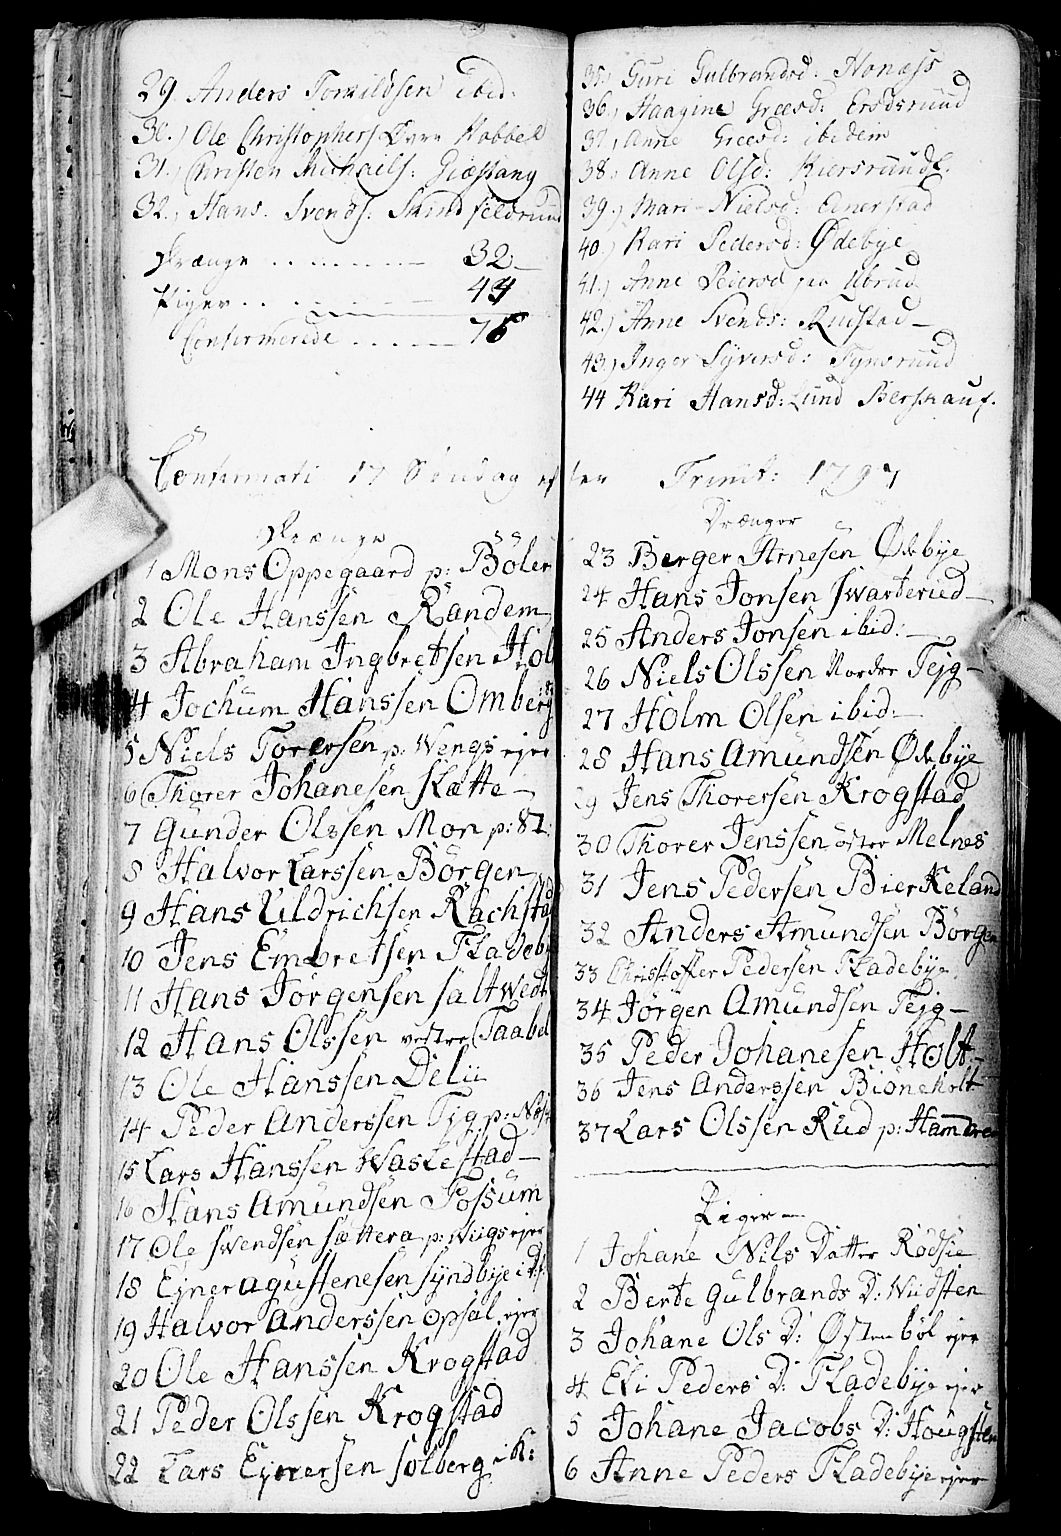 29. Anders Tomilösen ibid:
30.) Ole Christophers: Øvre Kabbel
31.) Christen Michaels: Giæstang
32.) Hans Svends: Skindfeldruud
Drænge . . . . . . . 32
Piger . . . . . . . 44
Confirmerede . . . . . 76
35.) Guri Gulbrandsd: Honæss
36.) Haagine Greesd: Ersdsruud
37.) Anne Greesd: ibidem
38.) Anne Olsd: Kiersruud
39.) Mari Nielsd: Egnerstad
40.) Kari Pedersd: Ødebye
41.) Anne Peiersd paa
42.) Anne Svends: Rustad
43.) Inger Syversd: Tynsruud
44 Kari Hansd: Lund Berskauf.
Confirmati 17 Søndag efter Trinit: 1797
Drænge
1 Mons Oppegaard p: Böler
2 Ole Hanssen Randem
3 Abraham Ingbretsen Hol
4 Jochum Hanssen Omberg
5 Niels Torersen p: Wengs ejer
6 Thorer Johanesen Slætte
7 Gunder Olssen Mon p: 82:
8 Halvor Larssen Börgen
9 Hans Uldrichsen Rachstad
10 Jens Embretsen Fladeby
11 Hans Jörgensen saltwedt
12 Hans Olssen vestre Taabel
13 Ole Hanssen Delii
14 Peder Anderssen Tjg p:
15 Lars Hanssen Waslestad
16 Hans Amundsen Fossum
17 Ole Swendsen Sættera p: Wiigs ejer
18 Ejner agustenesen syndbye
19 Halvor Anderssen opsal. ejer
20 Ole Hanssen Krogstad
21 Peder Olssen Krogstad
22 Lars Ejnersen solberg i K:
Drænger
23 Berger Arnesen Ødebye
24 Hans Jonsen Swarterud
25 Anders Jonsen ibid:
26 Niels Olssen Nordre Tejg
27 Holm Olsen ibid:
28 Hans Amundsen Ødebye
29 Jens Thorersen Krogstad
30 Thorer Jenssen öster Melnes
31 Jens Pedersen Bierkeland
32 Anders Amundsen Börgen
33 Christoffer Pedersen Fladebye
34 Jørgen Amundsen Tejg
35 Peder Johanesen Holt
36 Jens Anderssen Biöneholt
37 Lars Olssen Rud p: Hammeren
Piger
1 Johane Nils Datter Rödsie
2 Berte Gulbrands D: Wiidsten
3 Johane Ols D: Østenböl ejer
4 Eli Peders D: Fladebye ejer
5 Johane Jacobs D: Hougsten
6 Anne Peders Fladebye ejer